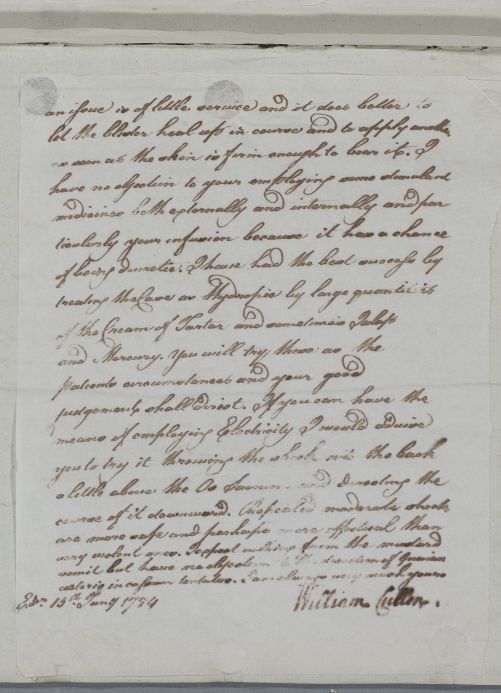 an issue is of little service and it does better to
let the blister heal up in course and to apply another
as soon as the skin is firm enough to bear it. I
have no objection to your employing some stimulant
medicines both externally and internally and par
ticularly your infusion because it has a chance
of being diuretic. I have had the best success by
treating the Case as Hydropic by large quantities
of the Cream of Tartar and sometimes Jalap
and Mercury. You will try these as the
patients circumstances and your good
judgement shall direct. If you can have the
means of employing Electricity I would advise
you to try it throwing the shock into the back
a little above the Os Sacrum and directing the
course of it downward. Repeated moderate shocks
are more safe and perhaps more effectual than
very violent ones. I expect nothing from the mustard
vomit but have no objection to the
in tentative. I am always very much yours
Edr. 15th Jany 1784 William Cullen.